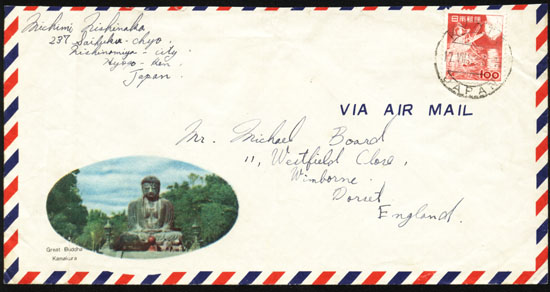 Michimi Nishinaka
237 Saifuku-chyo
Nishinomiya-city
Hyogo-Ken
Japan
日本郵便
100
JAPAN
VIA AIR MAIL
Mr. Michael Board
11, Westfield Close,
Wimborne
Dorset,
England.
Great Buddha
Kamakura